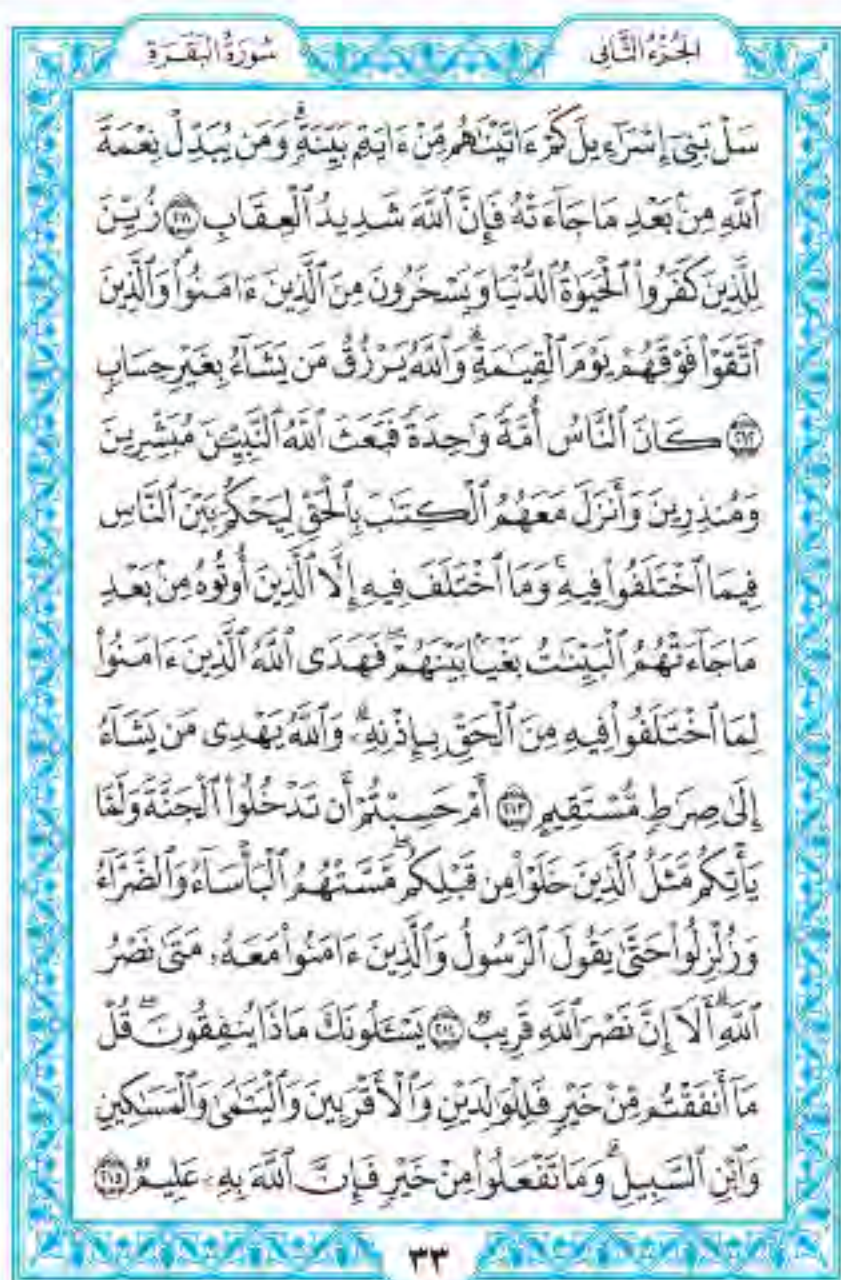 الجُزْءُ الثَّانِي
سُورَةُ الْبَقَرَةِ
سَلْ بَنِىٓ إِسْرَٰٓءِيلَ كَمْ ءَاتَيْنَٰهُم مِّنْ ءَايَةٍۭ بَيِّنَةٍۗ وَمَن يُبَدِّلْ نِعْمَةَ
ٱللَّهِ مِنۢ بَعْدِ مَا جَآءَتْهُ فَإِنَّ ٱللَّهَ شَدِيدُ ٱلْعِقَابِ ٢١١ زُيِّنَ
لِلَّذِينَ كَفَرُوا۟ ٱلْحَيَوٰةُ ٱلدُّنْيَا وَيَسْخَرُونَ مِنَ ٱلَّذِينَ ءَامَنُوا۟ۘ وَٱلَّذِينَ
ٱتَّقَوْا۟ فَوْقَهُمْ يَوْمَ ٱلْقِيَٰمَةِۗ وَٱللَّهُ يَرْزُقُ مَن يَشَآءُ بِغَيْرِ حِسَابٍ
٢١٢ كَانَ ٱلنَّاسُ أُمَّةً وَٰحِدَةً فَبَعَثَ ٱللَّهُ ٱلنَّبِيِّۦنَ مُبَشِّرِينَ
وَمُنذِرِينَ وَأَنزَلَ مَعَهُمُ ٱلْكِتَٰبَ بِٱلْحَقِّ لِيَحْكُمَ بَيْنَ ٱلنَّاسِ
فِيمَا ٱخْتَلَفُوا۟ فِيهِۚ وَمَا ٱخْتَلَفَ فِيهِ إِلَّا ٱلَّذِينَ أُوتُوهُ مِنۢ بَعْدِ
مَا جَآءَتْهُمُ ٱلْبَيِّنَٰتُ بَغْيًۢا بَيْنَهُمْۖ فَهَدَى ٱللَّهُ ٱلَّذِينَ ءَامَنُوا۟
لِمَا ٱخْتَلَفُوا۟ فِيهِ مِنَ ٱلْحَقِّ بِإِذْنِهِۦۗ وَٱللَّهُ يَهْدِى مَن يَشَآءُ
إِلَىٰ صِرَٰطٍ مُّسْتَقِيمٍ ٢١٣ أَمْ حَسِبْتُمْ أَن تَدْخُلُوا۟ ٱلْجَنَّةَ وَلَمَّا
يَأْتِكُم مَّثَلُ ٱلَّذِينَ خَلَوْا۟ مِن قَبْلِكُمۖ مَّسَّتْهُمُ ٱلْبَأْسَآءُ وَٱلضَّرَّآءُ
وَزُلْزِلُوا۟ حَتَّىٰ يَقُولَ ٱلرَّسُولُ وَٱلَّذِينَ ءَامَنُوا۟ مَعَهُۥ مَتَىٰ نَصْرُ
ٱللَّهِۗ أَلَآ إِنَّ نَصْرَ ٱللَّهِ قَرِيبٌ ٢١٤ يَسْـَٔلُونَكَ مَاذَا يُنفِقُونَۖ قُلْ
مَآ أَنفَقْتُم مِّنْ خَيْرٍ فَلِلْوَٰلِدَيْنِ وَٱلْأَقْرَبِينَ وَٱلْيَتَٰمَىٰ وَٱلْمَسَٰكِينِ
وَٱبْنِ ٱلسَّبِيلِۗ وَمَا تَفْعَلُوا۟ مِنْ خَيْرٍ فَإِنَّ ٱللَّهَ بِهِۦ عَلِيمٌ ٢١٥
٣٣